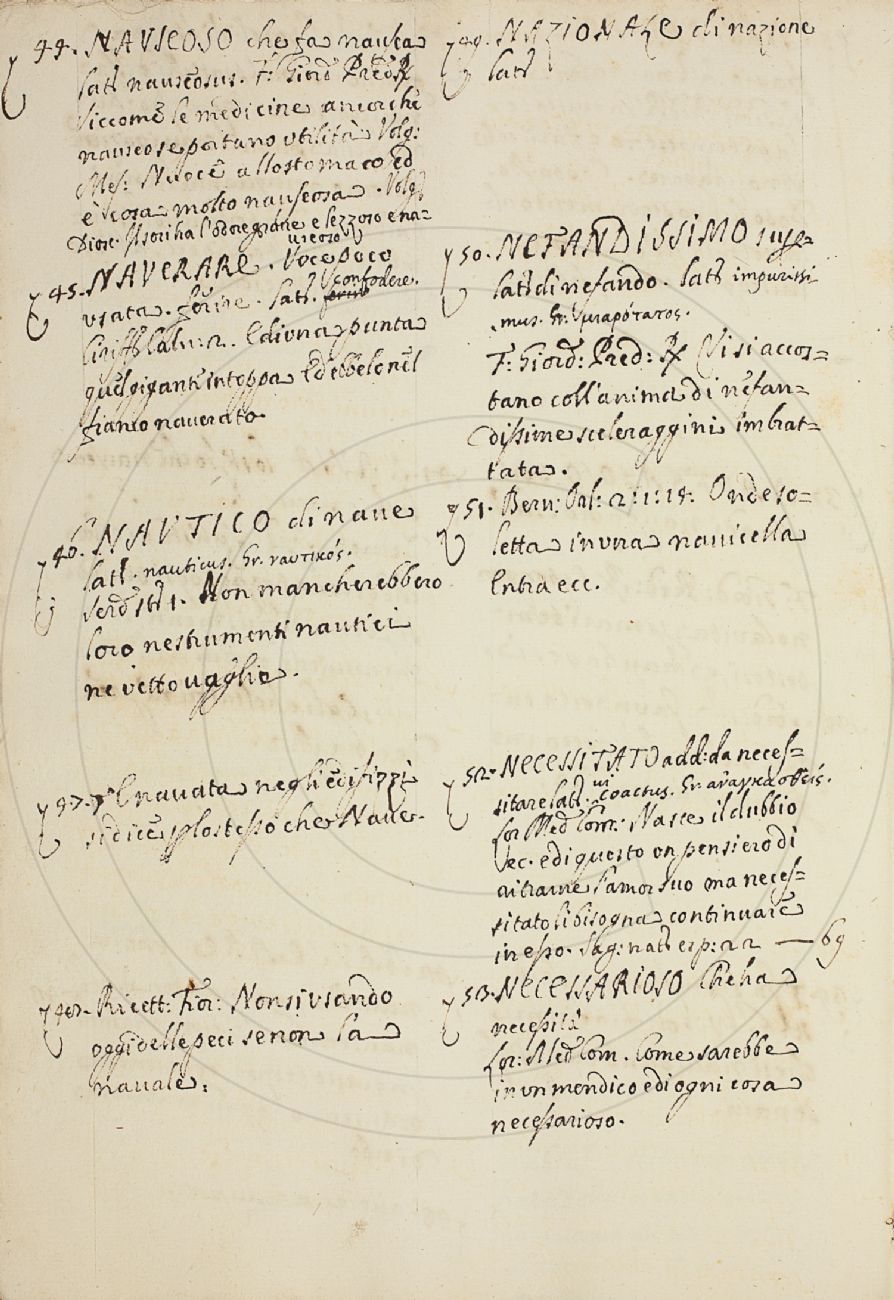 44. NAVSEOSO che fa nausea
Lat. nauseosus. F: Giord. Pred. R
Siccome le medicine ancorchè
nauseose portano utilità. Volg:
Mes: Nuoce allo stomaco ed
è cosa molto nauseosa. Volg:
Diosc. l'odore grave e lezzoso e na=
useoso
45. NAVERARE. Voce poco
usata. ferire. Lat. confodere.
Ciriff. Calv: 2. E di una punta
quel gigante intoppa E debbelo nel
fianco naverato
46. NAVTICO di nave
Lat. nauticus. Gr. ναυτικός.
Serd. st. 1. Non mancherebbero
loro ne strumenti nautici
ne vettovaglie.
47. E navata negli edifizzi
si dice p lo stesso che Nave.
48. Ricett: Fior: Non si usando
oggi delle peci se non la
navale.
49. NAZIONALE di nazione
Lat.
50. NEFANDISSIMO supe
lat. di nefando. Lat. impurissi
mus. Gr. μιαρότατος.
F: Giord: Pred: R Ci si accos=
tano coll'anima di nefan=
dissime sceleraggini imbrat=
tata.
51. Bern: Orl: 2: 1: 18: Onde so=
letta in una navicella
Entra ecc.
52. NECESSITATO add: da neces=
sitare lat. vi coactus. Gr. ἀναγκασθείς.
Cor. Med. Com: Nasce il dubbio
ec. e di questo un pensiero di
aitrarne l'amor suo ma neces=
sitato li bisogna continuare
in esso. Sag: nat. esp: 22 — 69
53. NECESSARIOSO Che ha
necessità
Cor: Med. Com. Come sarebbe
in un mendico e di ogni cosa
necessarioso.